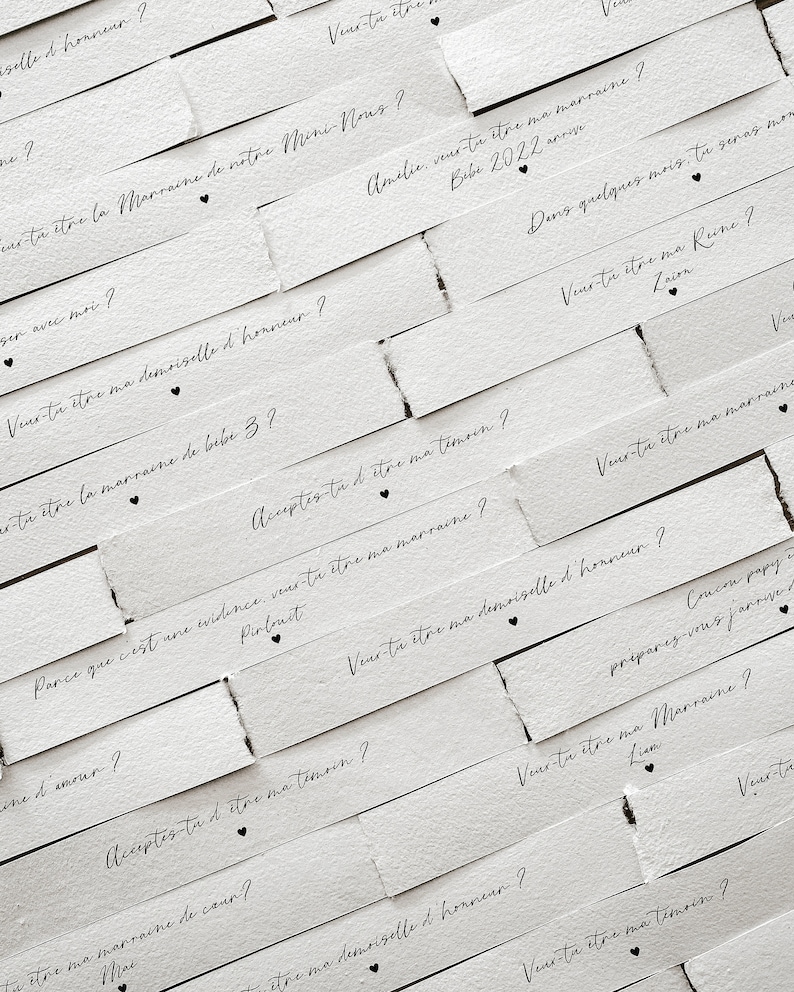 demoiselle d'honneur ?
Veux-tu
Veux-tu être la Marraine de notre Mini-Nous ?
Amélie, veux-tu être ma marraine ?
Bébé 2022 arrive
Dans quelques mois, tu seras
avec moi ?
Veux-tu être ma Reine ?
Zaïon
Veux-tu être ma demoiselle d'honneur ?
Veux-tu être la marraine de bébé 3 ?
Acceptes-tu d'être ma témoin ?
Veux-tu être ma marraine
Parce que c'est une évidence, veux-tu être ma marraine ?
Pirlouit
Veux-tu être ma demoiselle d'honneur ?
Coucou papy
préparez-vous j'arrive
d'amour ?
Acceptes-tu d'être ma témoin ?
Veux-tu être ma Marraine ?
Liam
Veux-tu
être ma marraine de cœur?
Maé
être ma demoiselle d'honneur ?
Veux-tu être ma témoin ?